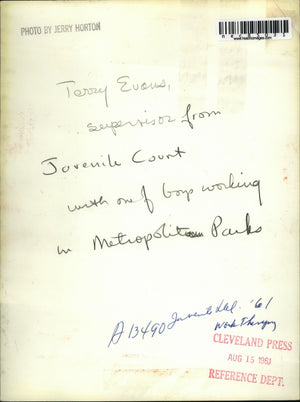 PHOTO BY JERRY HORTON
Terry Evans,
supervisor from
Juvenile Court
with one of boys working
in Metropolitan Parks
A 13490 Juvenile Del. '61
Work Therapy
CLEVELAND PRESS
AUG 15 1961
REFERENCE DEPT.